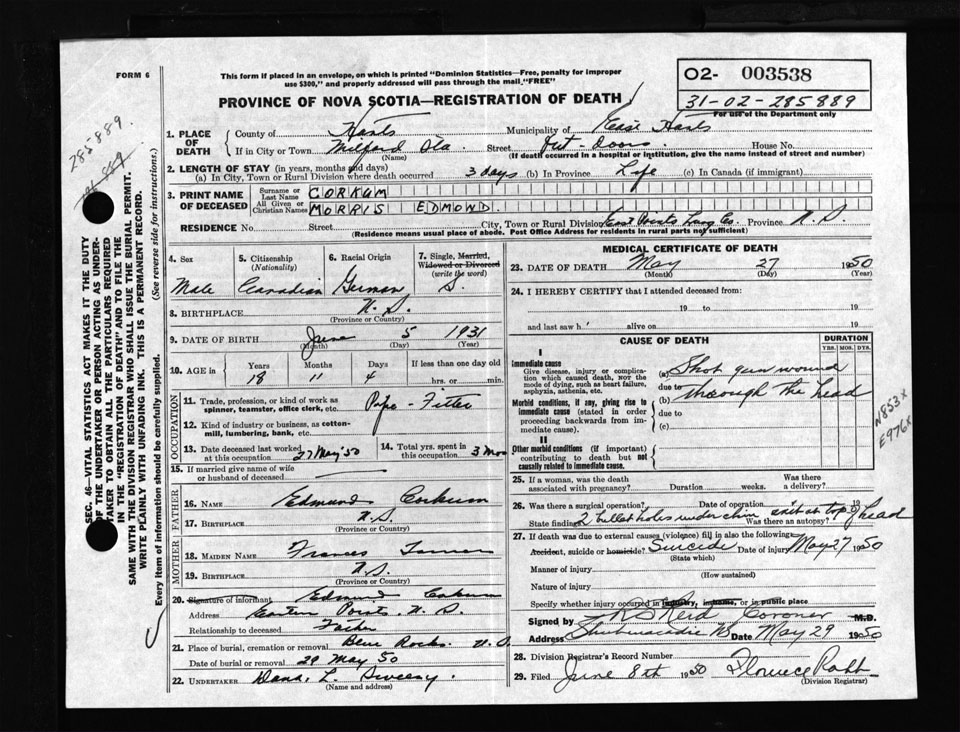 FORM 6
This form if placed in an envelope, on which is printed "Dominion Statistics—Free, penalty for improper
use $300," and properly addressed will pass through the mail "FREE"
PROVINCE OF NOVA SCOTIA—REGISTRATION OF DEATH
O2- 003538
31-02-285889
For use of the Department only
285889.
SEC. 46—VITAL STATISTICS ACT MAKES IT THE DUTY
OF THE UNDERTAKER OR PERSON ACTING AS UNDER-
TAKER TO OBTAIN ALL THE PARTICULARS REQUIRED
IN THE "REGISTRATION OF DEATH" AND TO FILE THE
SAME WITH THE DIVISION REGISTRAR WHO SHALL ISSUE THE BURIAL PERMIT.
WRITE PLAINLY WITH UNFADING INK. THIS IS A PERMANENT RECORD.
Every item of information should be carefully supplied. (See reverse side for instructions.)
1. PLACE OF DEATH County of Hants Municipality of East Hants
If in City or Town Milford Sta. (Name) Street Out-Doors. House No.
(If death occurred in a hospital or institution, give the name instead of street and number)
2. LENGTH OF STAY (in years, months and days)
(a) In City, Town or Rural Division where death occurred 3 days (b) In Province Life (c) In Canada (if immigrant)
3. PRINT NAME OF DECEASED Surname or Last Name CORKUM
All Given or Christian Names MORRIS EDMOND.
RESIDENCE No. Street City, Town or Rural Division East Points Lung Co. Province N.S.
(Residence means usual place of abode. Post Office Address for residents in rural parts not sufficient)
4. Sex Male
5. Citizenship (Nationality) Canadian
6. Racial Origin German
7. Single, Married, Widowed or Divorced (write the word) S.
8. BIRTHPLACE N.S. (Province or Country)
9. DATE OF BIRTH June (Month) 5 (Day) 1931 (Year)
10. AGE in Years 18 Months 11 Days 4 If less than one day old hrs. or min.
OCCUPATION
11. Trade, profession, or kind of work as spinner, teamster, office clerk, etc. Pipe-Fitter
12. Kind of industry or business, as cotton-mill, lumbering, bank, etc.
13. Date deceased last worked at this occupation 27 May '50
14. Total yrs. spent in this occupation 3 Mon
15. If married give name of wife or husband of deceased
FATHER
16. NAME Edmund Corkum
17. BIRTHPLACE N.S. (Province or Country)
MOTHER
18. MAIDEN NAME Frances
19. BIRTHPLACE N.S. (Province or Country)
20. Signature of informant Edmund Corkum
Address Eastern Points. N.S.
Relationship to deceased Father
21. Place of burial, cremation or removal Blue Rocks. N.S.
Date of burial or removal 29 May 50
22. UNDERTAKER Dana. L. Sweeny. (Name and address)
MEDICAL CERTIFICATE OF DEATH
23. DATE OF DEATH May (Month) 27 (Day) 1950 (Year)
24. I HEREBY CERTIFY that I attended deceased from:
19 to 19
and last saw h alive on 19
CAUSE OF DEATH
DURATION
YRS. MOS. DYS.
I
Immediate cause
Give disease, injury or complication which caused death, not the mode of dying, such as heart failure, asphyxia, asthenia, etc.
(a) Shot gun wound
due to
(b) through the head
due to
(c)
Morbid conditions, if any, giving rise to immediate cause (stated in order proceeding backwards from immediate cause).
II
Other morbid conditions (if important) contributing to death but not causally related to immediate cause.
N853 X
E976
25. If a woman, was the death associated with pregnancy? Duration weeks. Was there a delivery?
26. Was there a surgical operation? Date of operation 19
State findings 2 bullet holes under chin exit at top of head
Was there an autopsy?
27. If death was due to external causes (violence) fill in also the following:
Accident, suicide or homicide? Suicide (State which) Date of injury May 27 1950
Manner of injury (How sustained)
Nature of injury
Specify whether injury occurred in industry, in home, or in public place
Signed by Reid Coroner M.D.
Address Shubenacadie NS Date May 29 1950
28. Division Registrar's Record Number
29. Filed June 8th 1950 Florence Robb (Division Registrar)